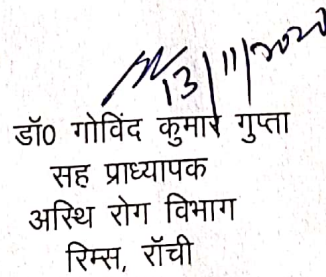 13/11/2020
डॉ0 गोविंद कुमार गुप्ता
सह प्राध्यापक
अस्थि रोग विभाग
रिम्स, रॉची